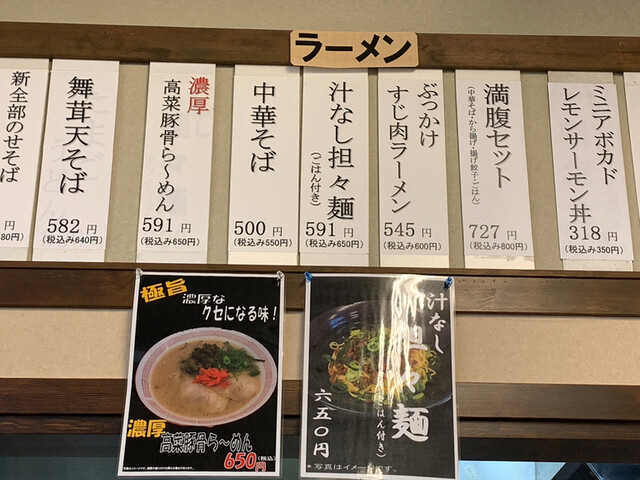 ラーメン
新全部のせそば
円
舞茸天そば
582 円
(税込み640円)
濃厚
高菜豚骨ら〜めん
591 円
(税込み650円)
中華そば
500 円
(税込み550円)
汁なし担々麺
(ごはん付き)
591 円
(税込み650円)
ぶっかけ
すじ肉ラーメン
545 円
(税込み600円)
満腹セット
(中華そば・から揚げ・揚げ餃子・ごはん)
727 円
(税込み800円)
ミニアボカド
レモンサーモン丼
318 円
(税込み350円)
極旨
濃厚な
クセになる味!
濃厚
高菜豚骨ら〜めん
650円
(税込)
汁なし
担々麺
(ごはん付き)
六五〇円
*写真はイメージです。